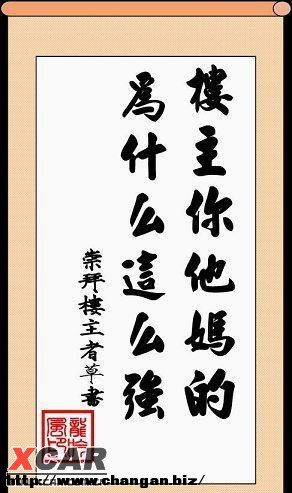 樓主你他媽的
為什么這么強
崇拜樓主者草書
XCAR
http://www.changan.biz/